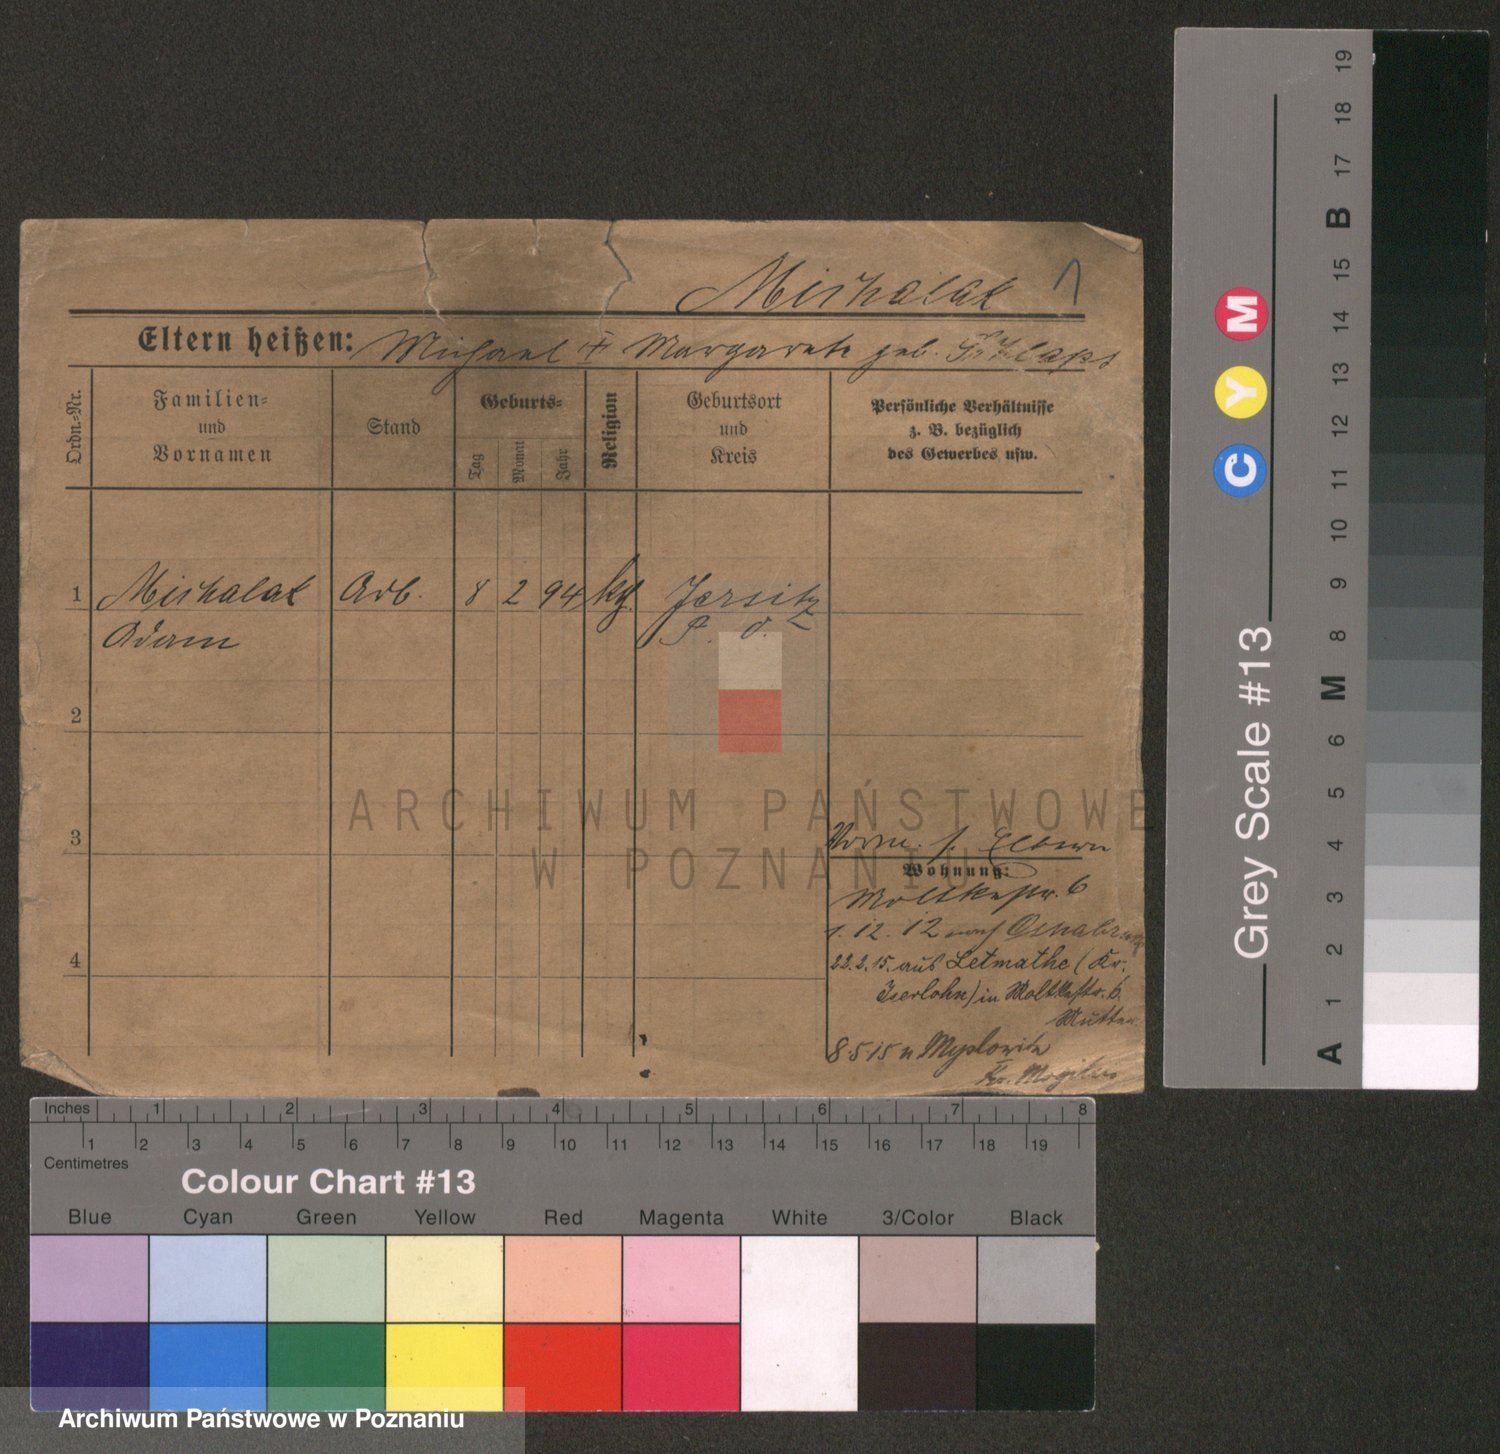 Michalak 1
Eltern heißen: Michael + Margarete geb.
Ordn.-Nr.
Familien- und Vornamen
Stand
Geburts-
Tag
Monat
Jahr
Religion
Geburtsort und Kreis
Persönliche Verhältnisse
z. B. bezüglich
des Gewerbes usw.
1 Michalak Arb. 8 2 94 kg. Jersitz
Adam P. O.
2
3
4
Vorm. s. Eltern
Wohnung:
Moltkestr. 6
1. 12. 12 nach Osnabrück
22.2.15. aus Letmathe (Kr.
Iserlohn) in Moltkestr. 6.
Mutter
8.5.15 n Myslowitz
ARCHIWUM PAŃSTWOWE
W POZNANIU
Inches 1 2 3 4 5 6 7 8
1 2 3 4 5 6 7 8 9 10 11 12 13 14 15 16 17 18 19
Centimetres
Colour Chart #13
Blue Cyan Green Yellow Red Magenta White 3/Color Black
Grey Scale #13
C Y M
A 1 2 3 4 5 6 M 8 9 10 11 12 13 14 15 B 17 18 19
Archiwum Państwowe w Poznaniu